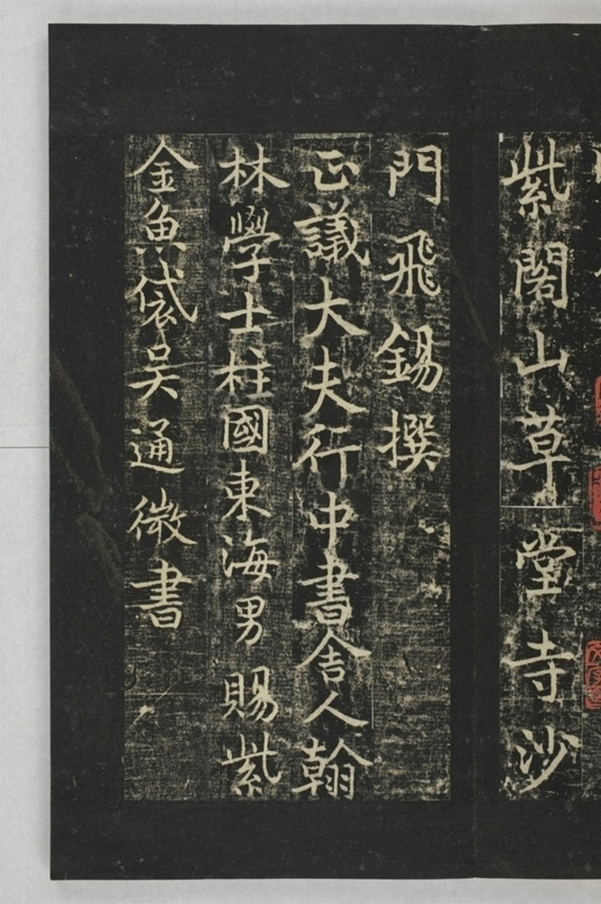 紫閣山草堂寺沙
門飛錫撰
正議大夫行中書舎人翰
林學士柱國東海男賜紫
金魚袋吴通微書